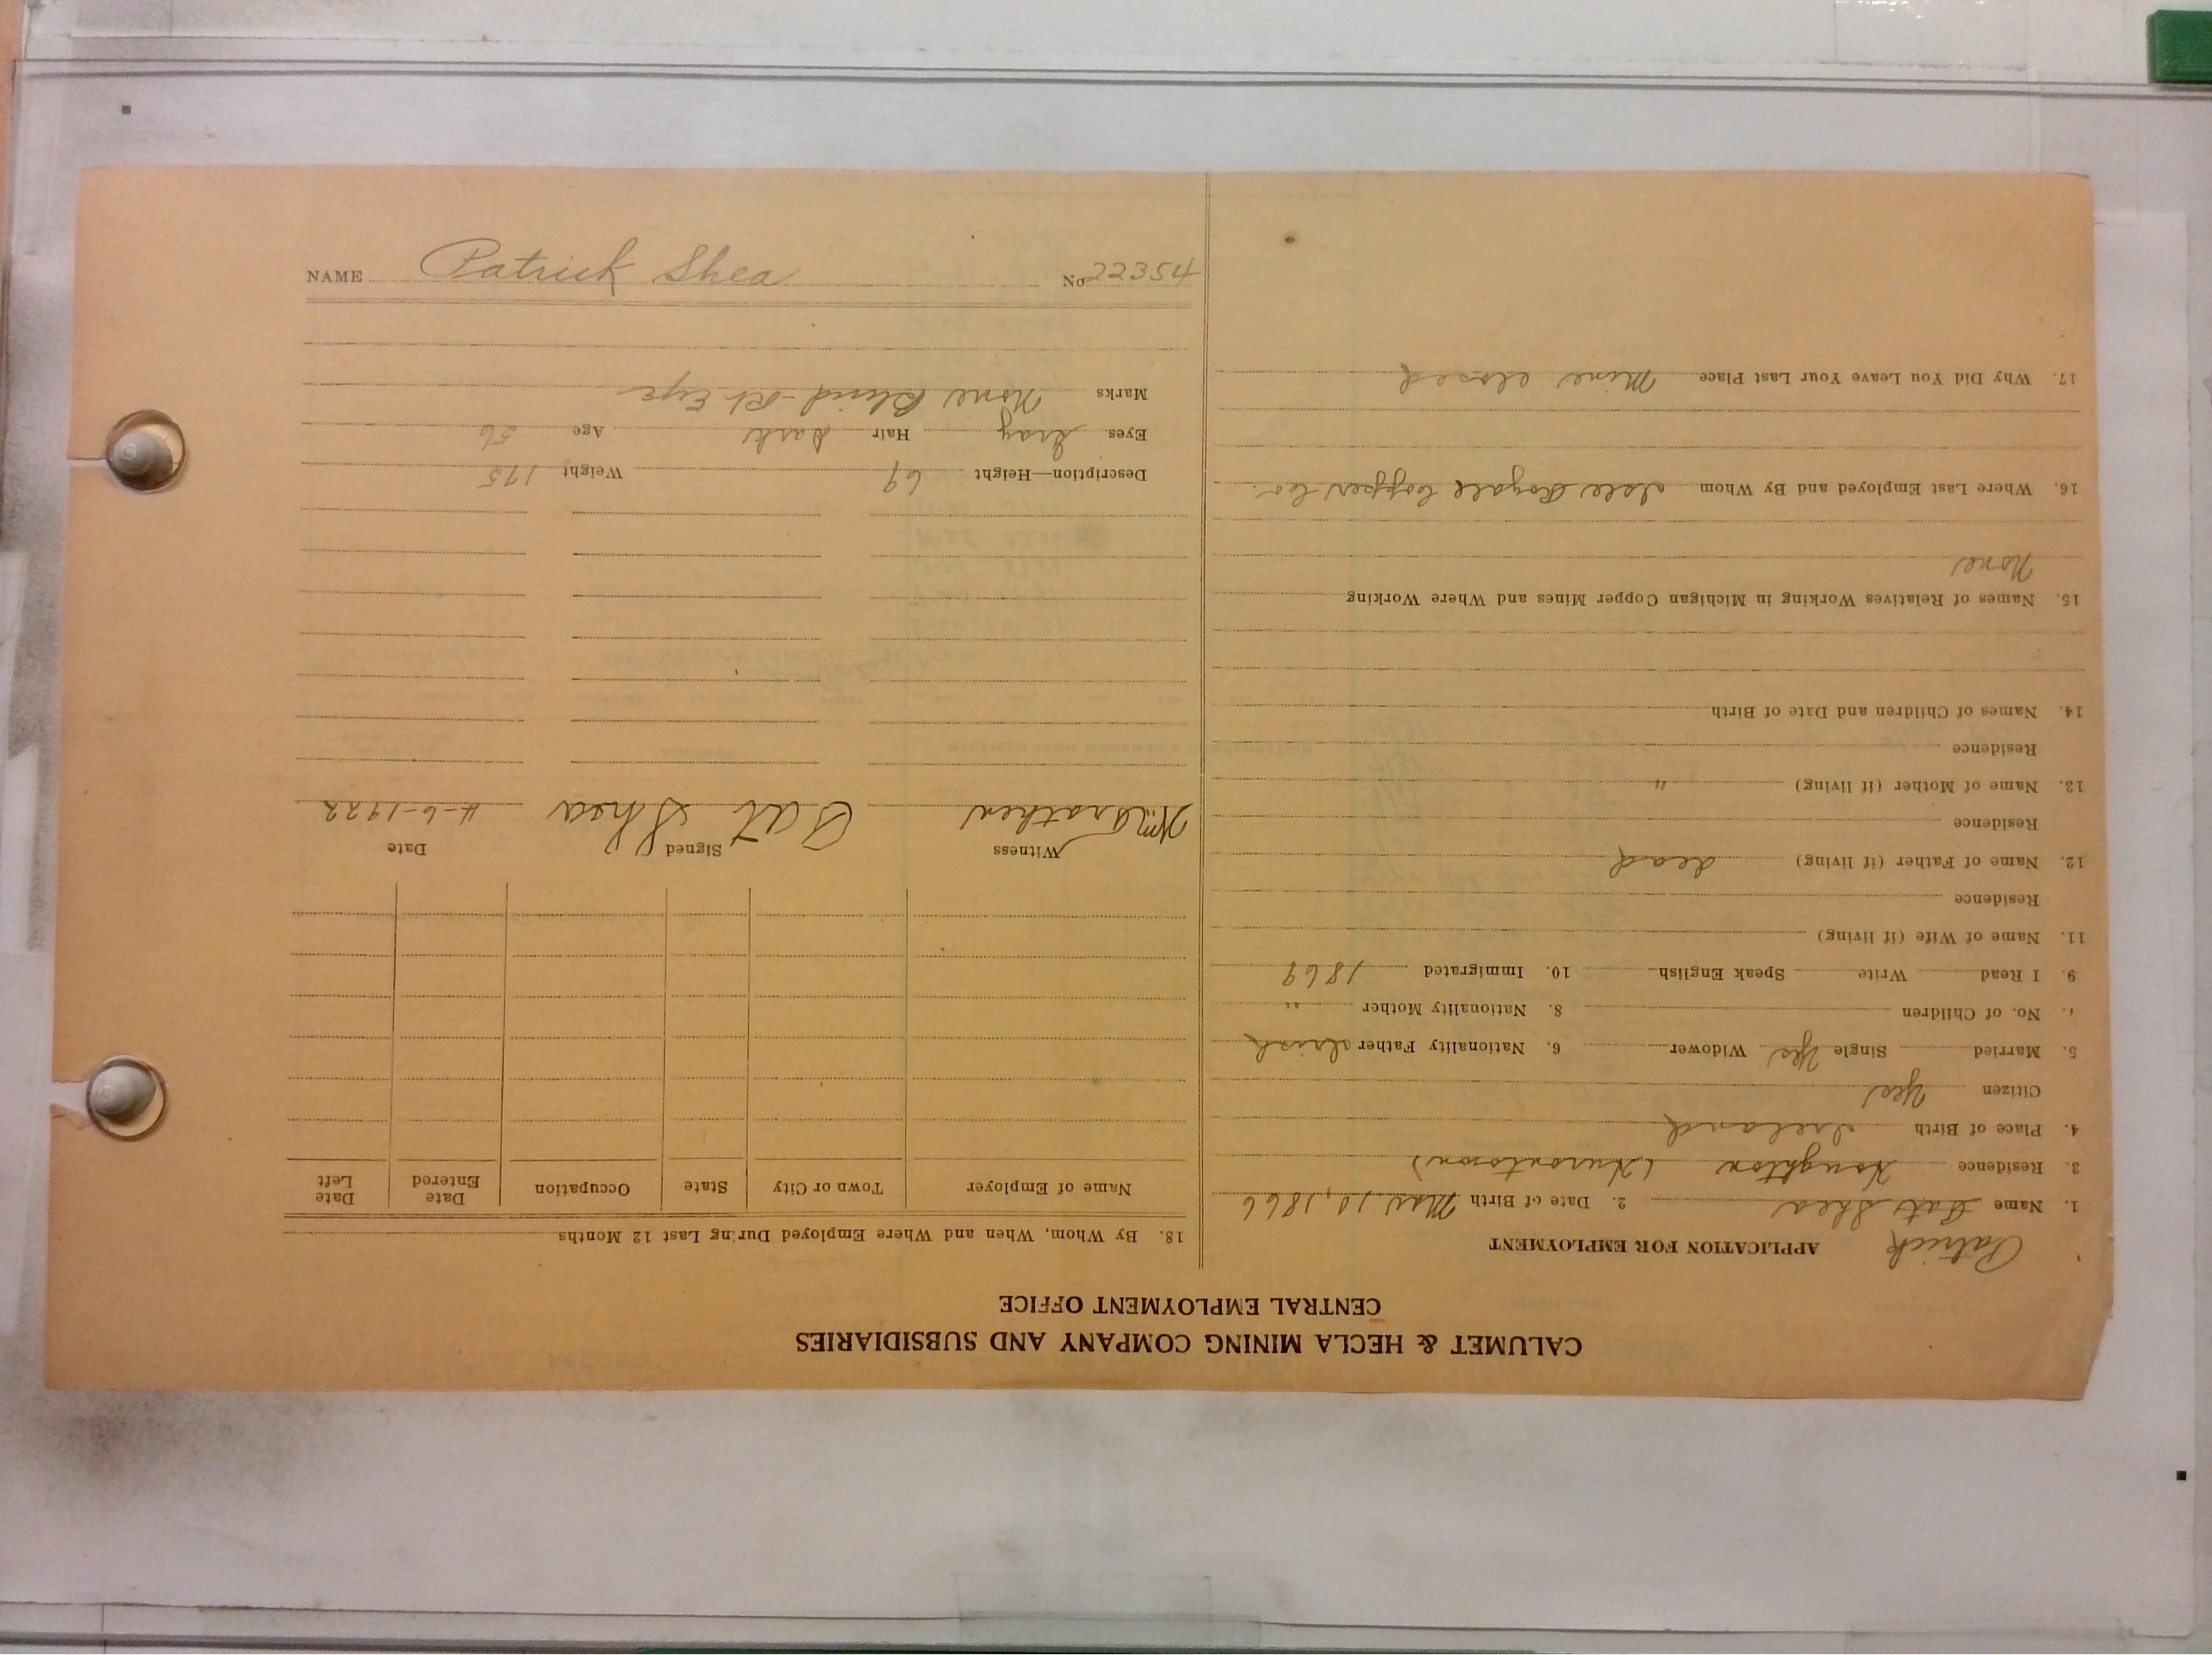 NAME Patrick Shea No 22354
CALUMET & HECLA MINING COMPANY AND SUBSIDIARIES
CENTRAL EMPLOYMENT OFFICE
APPLICATION FOR EMPLOYMENT
Patrick
1. Name Pat Shea 2. Date of Birth Mar 10, 1866
3. Residence Houghton (Hurontown)
4. Place of Birth Ireland
Citizen Yes
5. Married Single Yes Widower 6. Nationality Father Irish
7. No. of Children 8. Nationality Mother "
9. I Read Write Speak English 10. Immigrated 1869
11. Name of Wife (if living)
Residence
12. Name of Father (if living) dead
Residence
13. Name of Mother (if living) "
Residence
14. Names of Children and Date of Birth
15. Names of Relatives Working in Michigan Copper Mines and Where Working
None
16. Where Last Employed and By Whom Isle Royale Copper Co.
17. Why Did You Leave Your Last Place Mine closed
18. By Whom, When and Where Employed During Last 12 Months
Name of Employer Town or City State Occupation Date Entered Date Left
Witness Signed Date
Pat Shea 4-6-1922
Description—Height 69 Weight 175
Eyes Gray Hair Dark Age 56
Marks None Blind-Rt Eye